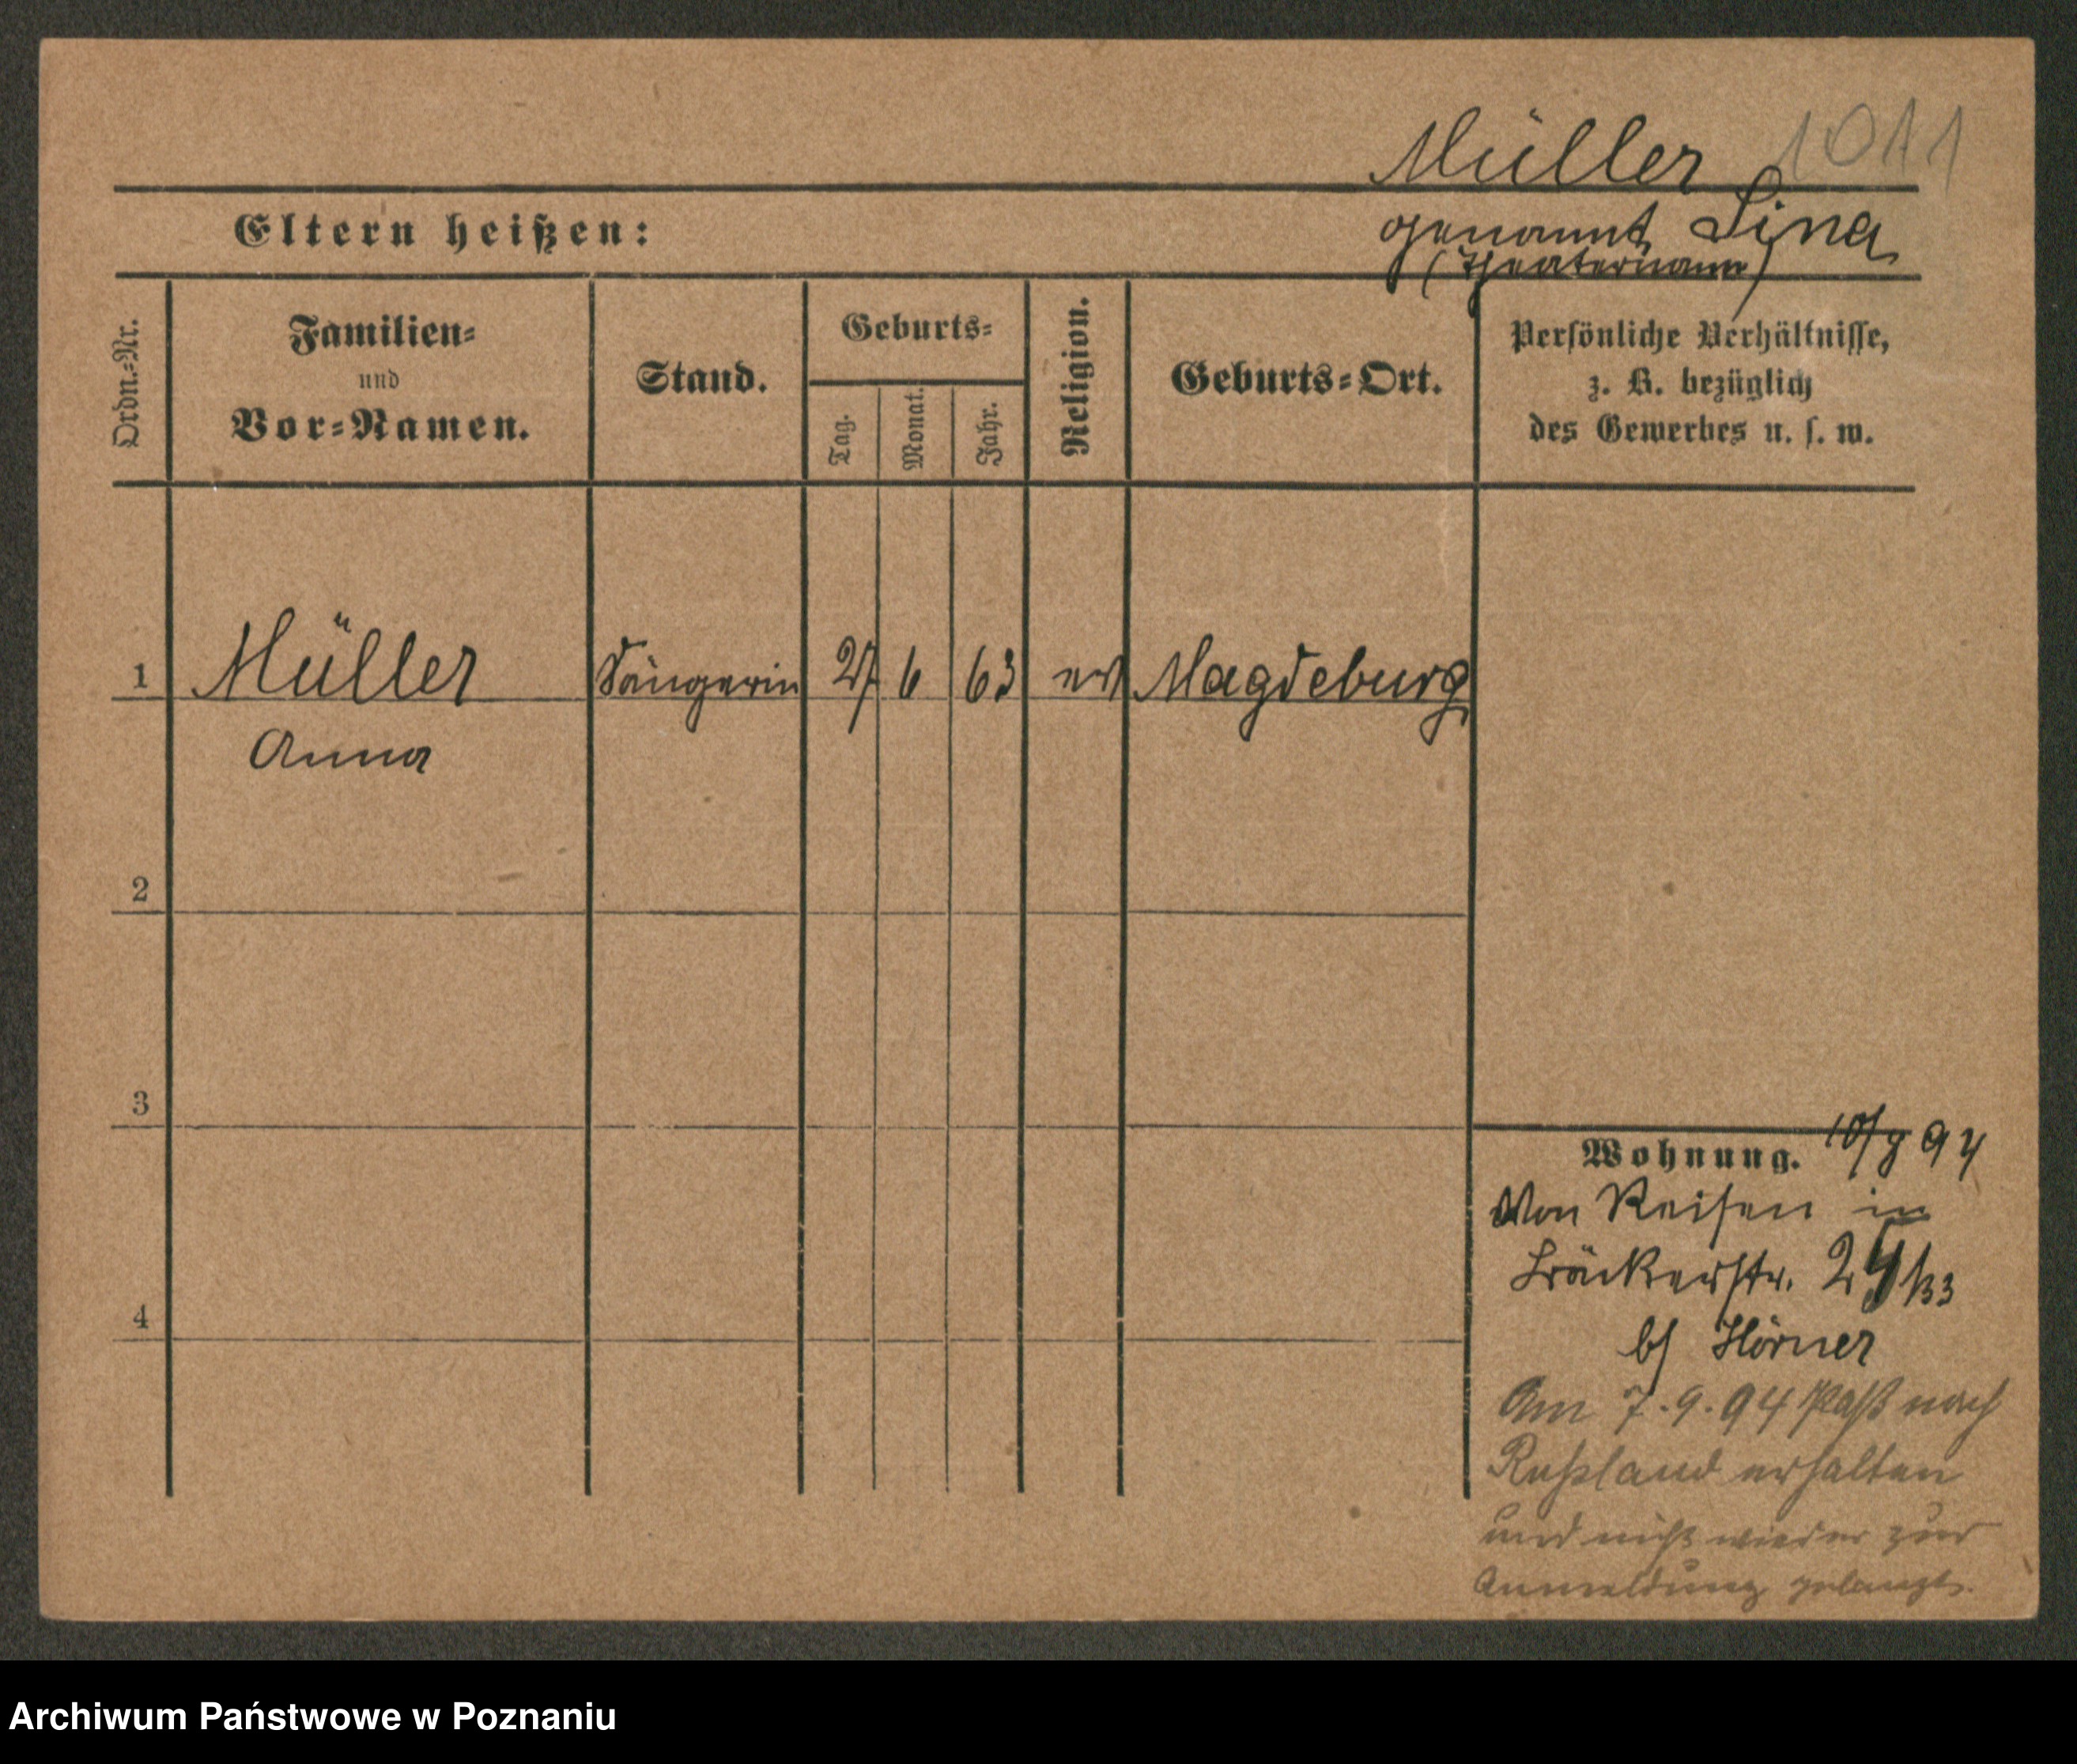 Müller 1011
Eltern heißen:
genannt Lina
(Theatername)
Ordn.-Nr.
Familien-
und
Vor-Namen.
Stand.
Geburts-
Tag.
Monat.
Jahr.
Religion.
Geburts-Ort.
Persönliche Verhältnisse,
z. B. bezüglich
des Gewerbes u. s. w.
1 Müller Sängerin 27 6 63 ev Magdeburg
Anna
2
3
4
Wohnung. 10/8 94
Von Reisen in
Bäckerstr. 24/33
b/ Hörner
Am 7.9.94 Paß nach
Russland erhalten
und nicht wieder zur
Anmeldung gelangt.
Archiwum Państwowe w Poznaniu